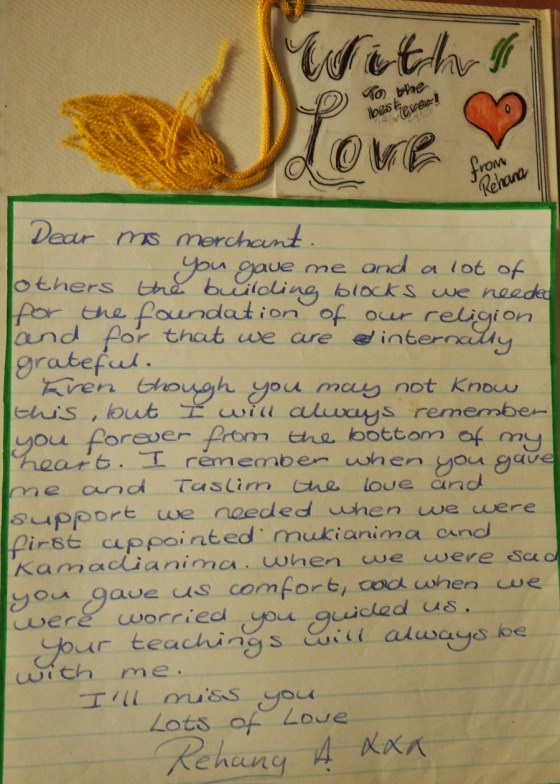 With
To the
best ever!
Love
from
Rehana
Dear ms merchant.
You gave me and a lot of
others the building blocks we needed
for the foundation of our religion
and for that we are internally
grateful.
Even though you may not know
this, but I will always remember
you forever from the bottom of my
heart. I remember when you gave
me and Taslim the love and
support we needed when we were
first appointed mukianima and
Kamadianima. When we were sad
you gave us comfort, and when we
were worried you guided us.
Your teachings will always be
with me.
I'll miss you
Lots of Love
Rehana A. xxx